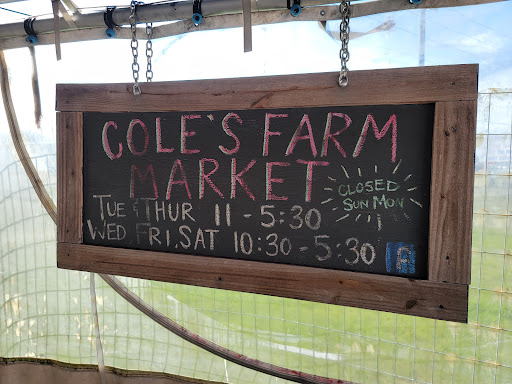 COLE'S FARM
MARKET
CLOSED
SUN MON
TUE & THUR 11 - 5:30
WED FRI, SAT 10:30 - 5:30